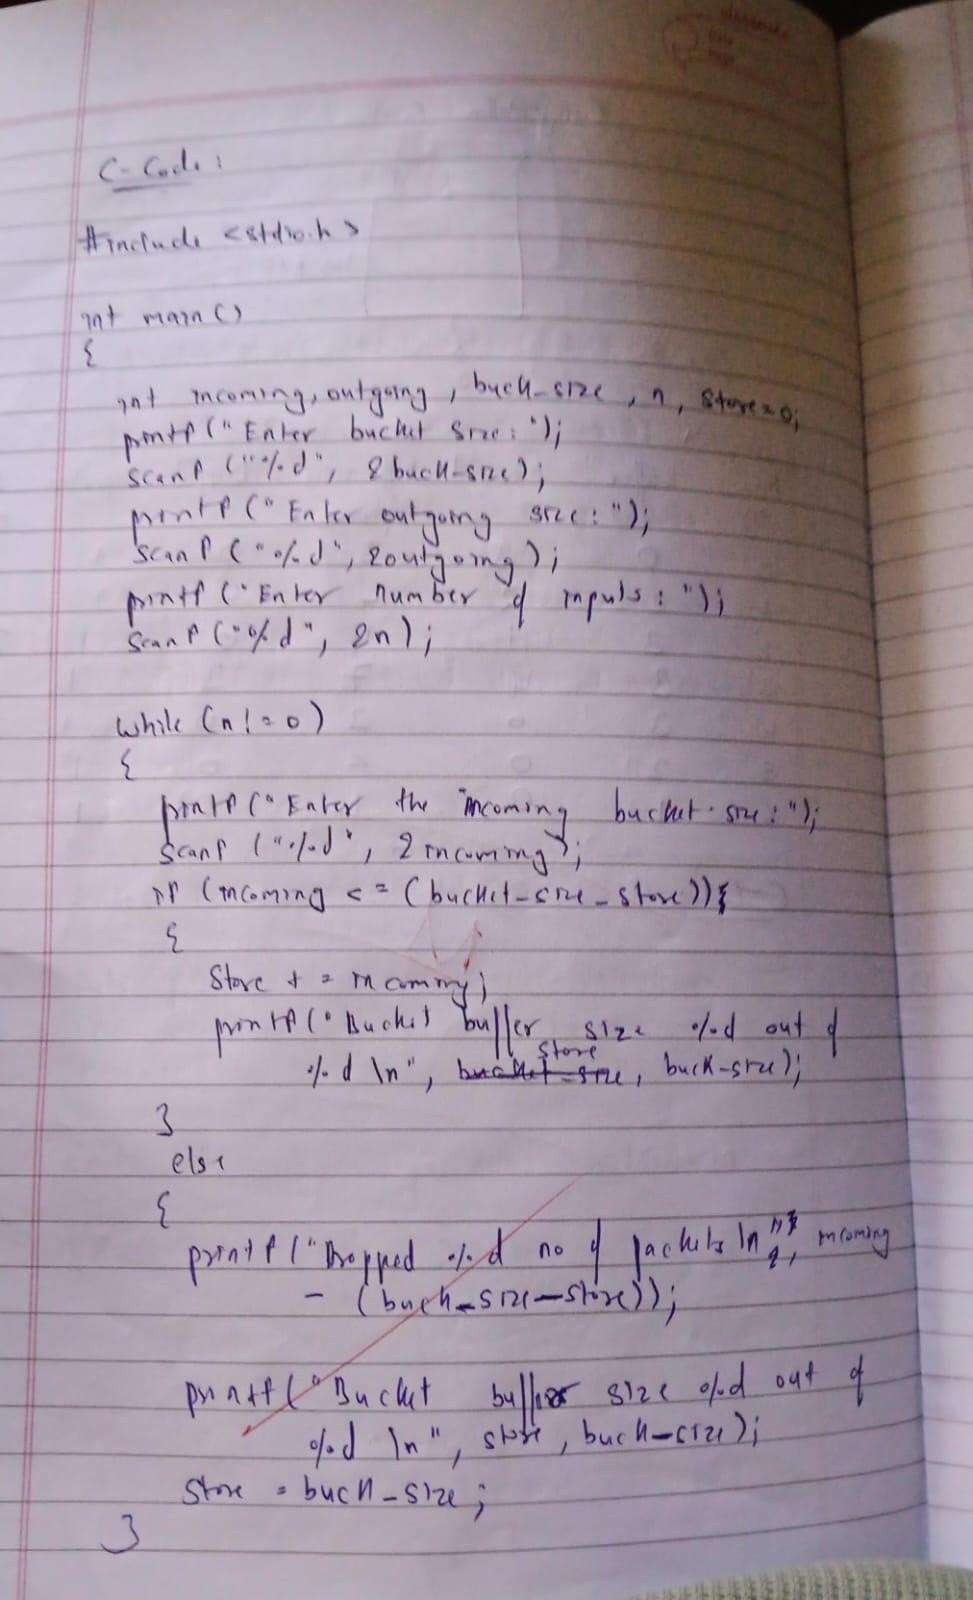 C-Code:
#include <stdio.h>
int main()
{
int incoming, outgoing, buck_size, n, store=0;
printf("Enter bucket size:");
scanf("%d", &buck-size);
printf("Enter outgoing size:");
scanf("%d", &outgoing);
printf("Enter number of inputs:");
scanf("%d", &n);
while (n!=0)
{
printf("Enter the incoming bucket size:");
scanf("%d", &incoming);
if (incoming <= (bucket_size - store))
{
store += incoming;
printf("Bucket buffer size %d out of
%d \n", store, buck-size);
}
else
{
printf("Dropped %d no of packets \n", incoming
- (buck_size-store));
printf("Bucket buffer size %d out of
%d \n", store, buck-size);
store = buck-size;
}